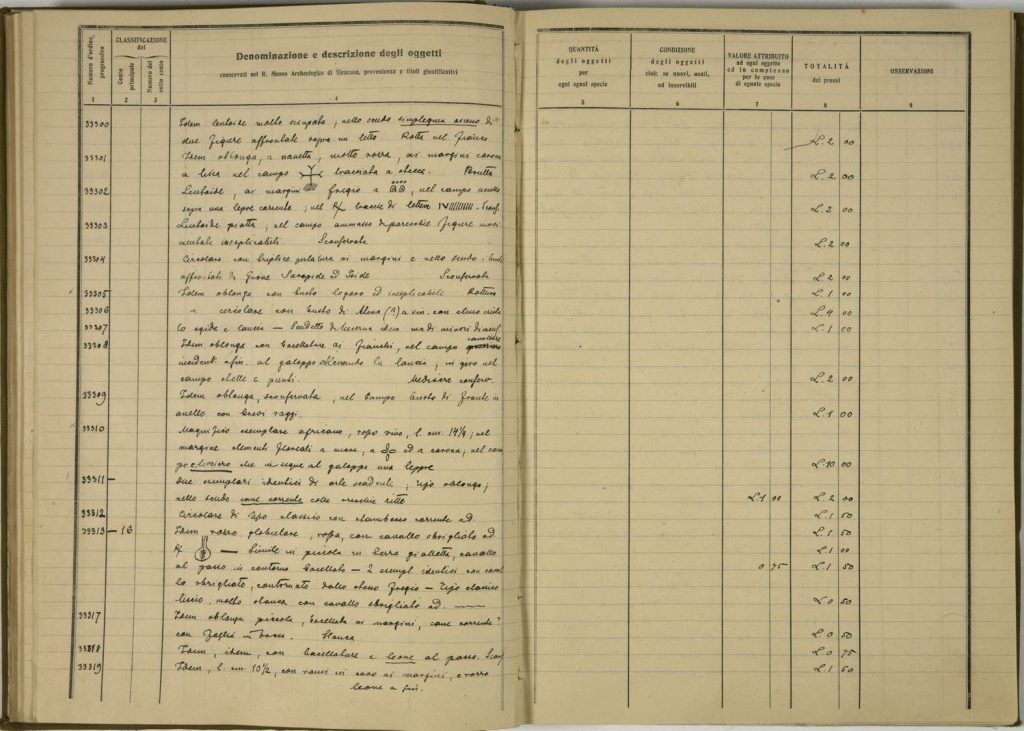 Numero d'ordine progressivo
CLASSIFICAZIONE del
Conto principale
Numero del sotto conto
Denominazione e descrizione degli oggetti
conservati nel R. Museo Archeologico di Siracusa, provenienza e titoli giustificativi
1 2 3 4
33300 Idem lenticide molto sciupata, nello scudo simplegma osceno di
due figure affrontate sopra un letto Rotta nel fianco
33301 Idem oblonga, a navetta, molto rozza, ai margini corona
a lisca nel campo tracciata a stecca. Brutta
33302 ai margini fregio a nel campo
sopra una lepre corrente; nel tracce di lettere IV
33303 piatta, nel campo ammasso di parecchie figure
inesplicabili. Sconservata
33304 Circolare con triplice perlatura ai margini e nello scudo i busti
affrontati di Giove Sarapide ed Iside Sconservata
33305 Idem oblonga con busto logoro ed inesplicabile Rottura
33306 " circolare con busto di (?) a sin. con elmo
33307 lo egida e lancia — idem ma di minori
33308 Idem oblonga con baccellature ai fianchi, nel campo cavaliere
a sin. al galoppo la lancia, in giro nel
campo stelle e punti. Mediocre conserv.
33309 Idem oblonga, sconservata, nel campo busto di fronte in
anello con brevi raggi.
33310 Magnifico esemplare africano, rosso vivo, l. cm. 14½; nel
margine elementi floreali a cuore, a ed a corona; nel cam
po che insegue al galoppo una lepre
33311 due esemplari identici di arte scadente; tipo oblongo;
nello scudo cane corrente colle orecchie ritte
33312 Circolare di tipo classico con corrente ad.
33313 — 16 Idem rosso globulare, rossa, con cavallo sbrigliato ad
— Simile ma piccola in terra gialletta, cavallo
al passo in contorno baccellato — 2 esempl. identici con caval
lo sbrigliato, contornato dallo stesso fregio — Tipo classico
liscio, molto stanca con cavallo sbrigliato ad.
33317 Idem oblonga piccola, baccellata ai margini, cane corrente?
con foglia in bocca. Stanca
33318 Idem, idem, con baccellature e leone al passo.
33319 Idem, l. cm. 10½, con ai margini, e rozzo
leone a sin.
QUANTITÀ
degli oggetti
per
ogni egual specie
CONDIZIONE
degli oggetti
cioè: se nuovi, usati,
od inservibili
VALORE ATTRIBUITO
ad ogni oggetto
ed in complesso
per le cose
di eguale specie
TOTALITÀ
dei prezzi
OSSERVAZIONI
5 6 7 8 9
L. 2 00
L. 2 00
L. 2 00
L. 2 00
L. 2 00
L. 1 00
L. 4 00
L. 1 00
L. 2 00
L. 1 00
L. 10 00
L. 1 00 L. 2 00
L. 1 50
L. 1 50
L. 1 00
0 75 L. 1 50
L. 0 50
L. 0 50
L. 0 75
L. 1 50